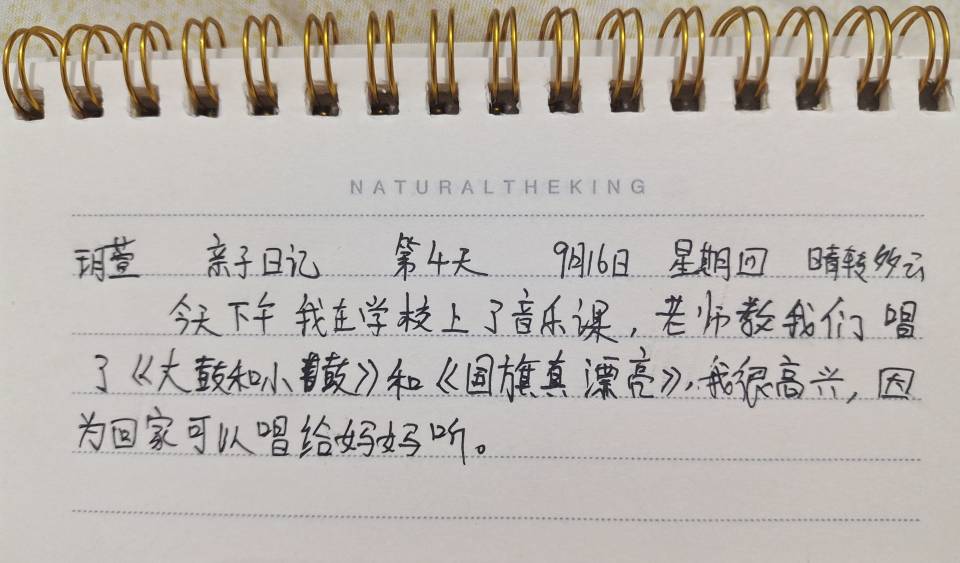 NATURALTHEKING
玥萱 亲子日记 第4天 9月16日 星期四 晴转多云
今天下午我在学校上了音乐课，老师教我们唱
了《大鼓和小鼓》和《国旗真漂亮》，我很高兴，因
为回家可以唱给妈妈听。